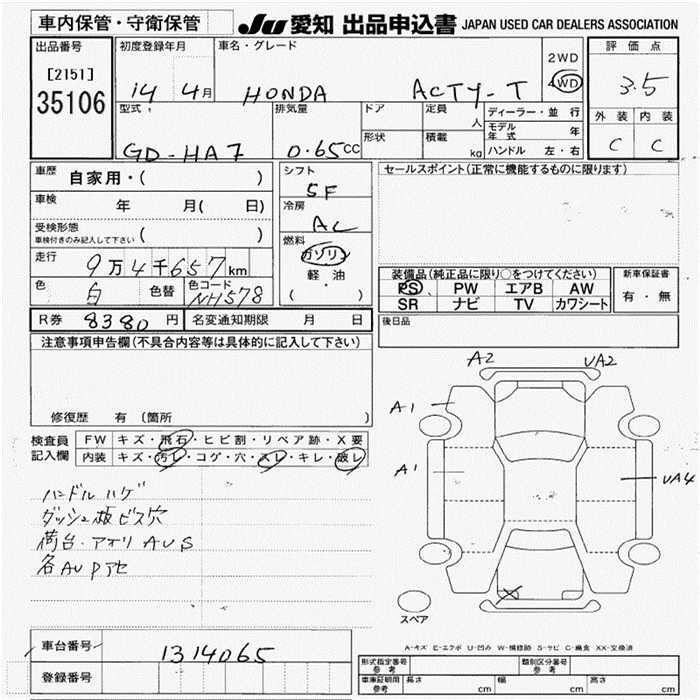 車内保管・守衛保管
JU 愛知 出品申込書 JAPAN USED CAR DEALERS ASSOCIATION
出品番号
[2151]
35106
初度登録年月
14 4月
車名・グレード
HONDA ACTY-T
2WD
4WD
評価点
3.5
外装 内装
C C
型式
GD-HA7
排気量
0.65cc
ドア
形状
定員
人
積載
kg
ディーラー・並行
モデル年式 年
ハンドル 左・右
車歴
自家用・( )
車検 年 月( 日)
受検形態
車検付きのみ記入して下さい ( )
走行
9万4千657km
色
白
色替
色コード
NH578
シフト
5F
冷房
AC
燃料
ガソリン
軽・油
( ・ )
セールスポイント(正常に機能するものに限ります)
装備品(純正品に限り○をつけてください)
PS PW エアB AW
SR ナビ TV カワシート
新車保証書
有・無
後日品
R券 8380 円
名変通知期限 月 日
注意事項申告欄(不具合内容等は具体的に記入して下さい)
修復歴 有 (箇所 )
検査員
記入欄
FW キズ・飛石・ヒビ割・リペア跡・X要
内装 キズ・汚レ・コゲ・穴・スレ・キレ・破レ
ハンドルハゲ
ダッシュ板ビス穴
荷台・アオリ AUS
各AUPアセ
A2
UA2
A1
A1
UA4
X
スペア
A-キズ E-エクボ U-凹み W-補修跡 S-サビ C-腐食 XX-交換済
車台番号
1314065
登録番号
形式指定番号
参考
類別区分番号
参考
車庫証明用
参考
長さ cm 幅 cm 高さ cm